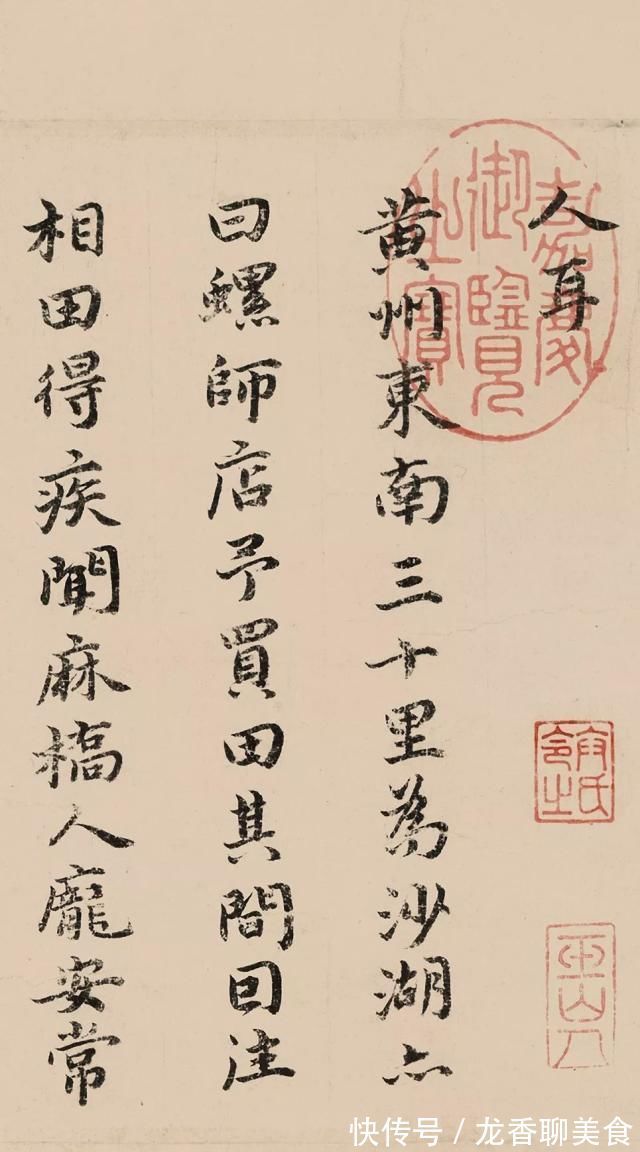 人耳
黄州東南三十里為沙湖亦
曰螺師店予買田其間囙往
相田得疾聞麻橋人龐安常
嘉慶御覽之寶
快传号 / 龙香聊美食